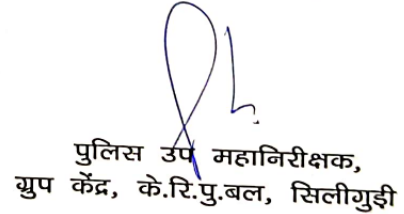 पुलिस उप महानिरीक्षक,
ग्रुप केंद्र, के.रि.पु.बल, सिलीगुड़ी